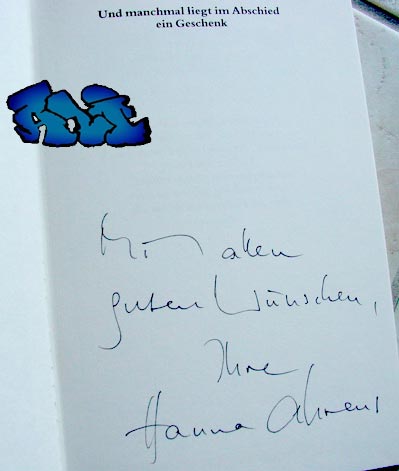 Und manchmal liegt im Abschied
ein Geschenk
Mit allen
guten Wünschen,
Ihre
Hanna Ahrens